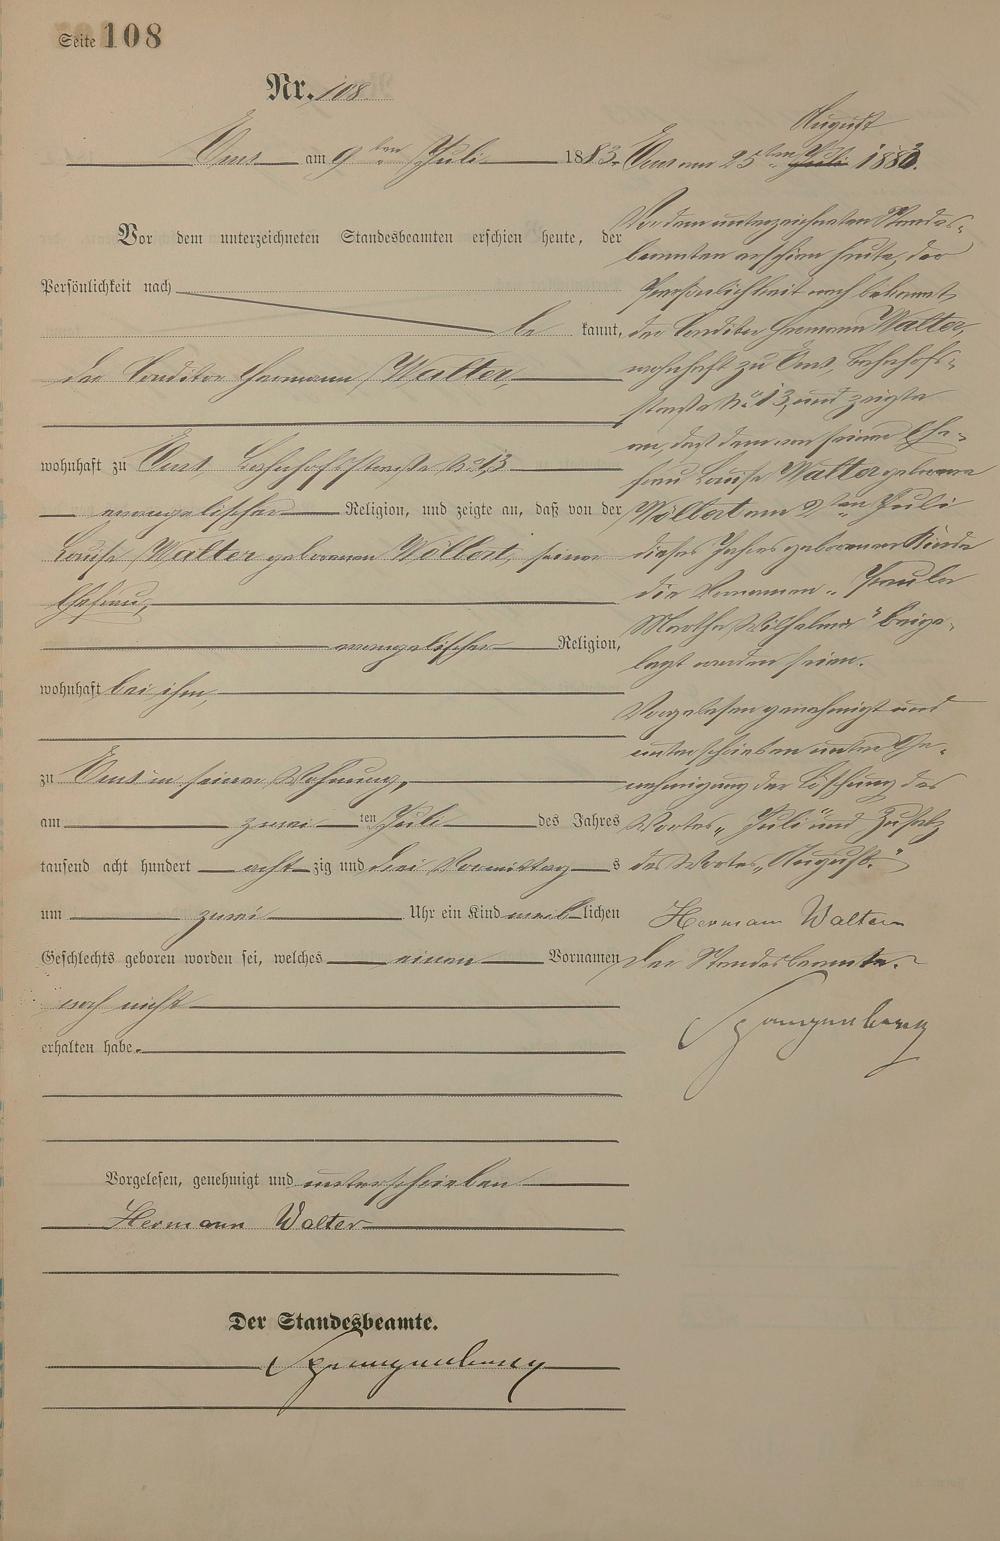 Seite 108
Nr. 108
Ems am 9ten Juli 1883.
Vor dem unterzeichneten Standesbeamten erschien heute, der
Persönlichkeit nach
be kannt,
der Conditor Hermann Walter,
wohnhaft zu Ems Bahnhofsstraße No 13
evangelischer Religion, und zeigte an, daß von der
Louise Walter geborenen Wölbert, seiner
Ehefrau,
evangelischer Religion,
wohnhaft bei ihm,
zu Ems in seiner Wohnung,
am zwei ten Juli des Jahres
tausend acht hundert acht zig und drei Vormittag s
um zwei Uhr ein Kind weib lichen
Geschlechts geboren worden sei, welches einen Vornamen
noch nicht
erhalten habe.
Vorgelesen, genehmigt und unterschrieben
Hermann Walter
Der Standesbeamte.
Spangenberg
August
Ems am 25ten Juli 1883.
Vor dem unterzeichneten Standes-
beamten erschien heute, der
Persönlichkeit nach bekannt,
der Conditor Hermann Walter,
wohnhaft zu Ems, Bahnhofs-
straße No 13, und zeigte
an, daß dem von seiner Ehe-
frau Louise Walter geborene
Wölbert am 2ten Juli
dieses Jahres geborenen Kinde
die Vornamen „Paula
Martha Wilhelma" beige-
legt worden seien.
Vorgelesen genehmigt und
unterschrieben unter Ge-
nehmigung der Löschung des
Wortes „Juli" und Zusatz
des Wortes „August."
Hermann Walter
Der Standesbeamte.
Spangenberg